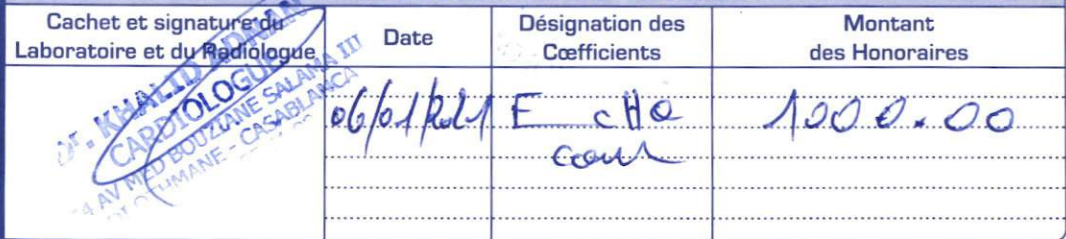 Cachet et signature du
Laboratoire et du Radiologue
Date
Désignation des
Cœfficients
Montant
des Honoraires
Dr. KHALID
CARDIOLOGUE
AV MED BOUZIANE SALAMA III
OTHMANE - CASABLANCA
06/01/2021
E cHO
cœur
1000.00